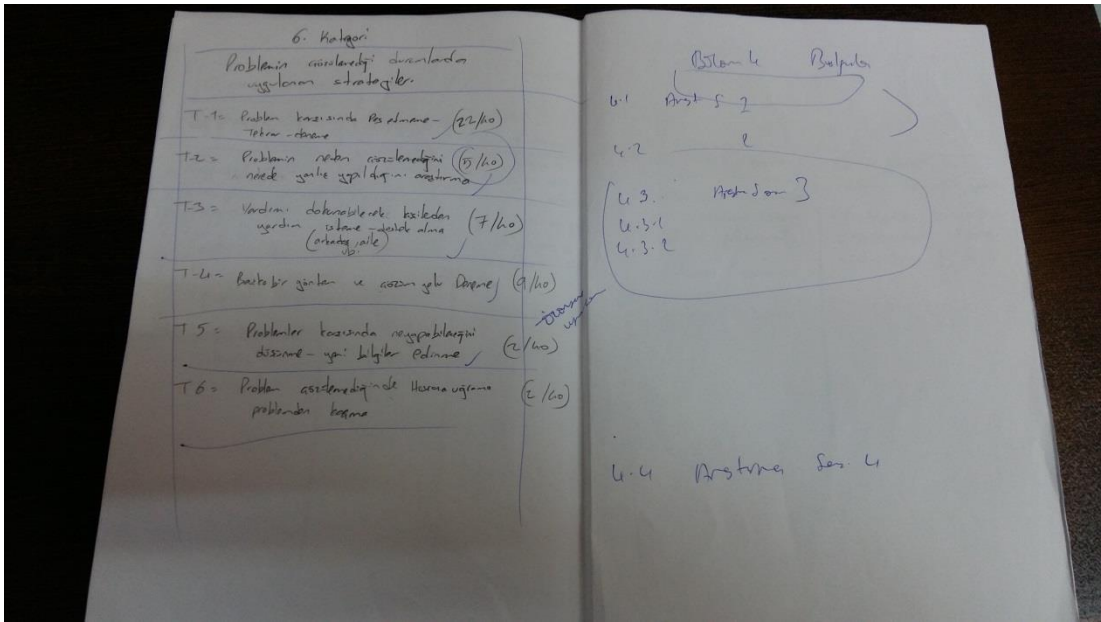 6. Kategori
Problemin çözülemediği durumlarda
uygulanan stratejiler.
T-1= Problem karşısında Pes etmeme- (22/40)
Tekrar-deneme
T-2= Problemin neden çözülemediğini (5/40)
nerede yanlış yapıldığını araştırma
T-3= Yardımı dokunabilecek kişilerden (7/40)
yardım isteme-destek alma
(arkadaş, aile)
vb.
T-4= Başka bir yöntem ve çözüm yolu Deneme (9/40)
T 5= Problemler karşısında ne yapabileceğini
düşünme- yeni bilgiler edinme (2/40)
T 6= Problem çözülemediğinde Hüsrana uğrama (2/40)
problemden kaçma
Bölüm 4 Bulgular
4.1
4.2
4.3. 3
4.3.1
4.3.2
4.4 Araştırma 4